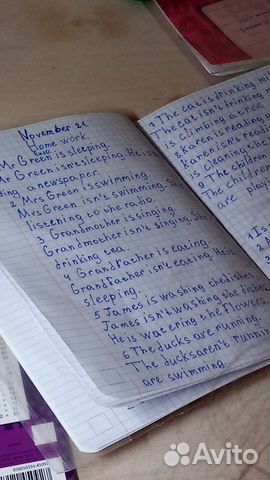 November 21
Home work.
Ex10
Mr. Green is sleeping.
Mr Green isn't sleeping. He is
a newspaper.
2 Mrs Green is swimming.
Mrs Green isn't swimming. She
listening to the radio.
3 Grandmother is singing.
Grandmother isn't singing. She
drinking tea.
4 Grandfather is eating.
Grandfather isn't eating. He is
sleeping.
5 James is washing the dishes.
James isn't washing the dishes
He is watering the flowers
6 The ducks are running.
The ducks aren't runnin
are swimming.
7 The cat is drinking mi
The cat isn't drinking
is climbing a tree.
8 Karen is reading
Karen isn't readi
is cleaning the
9 The children
The children
are play
Avito